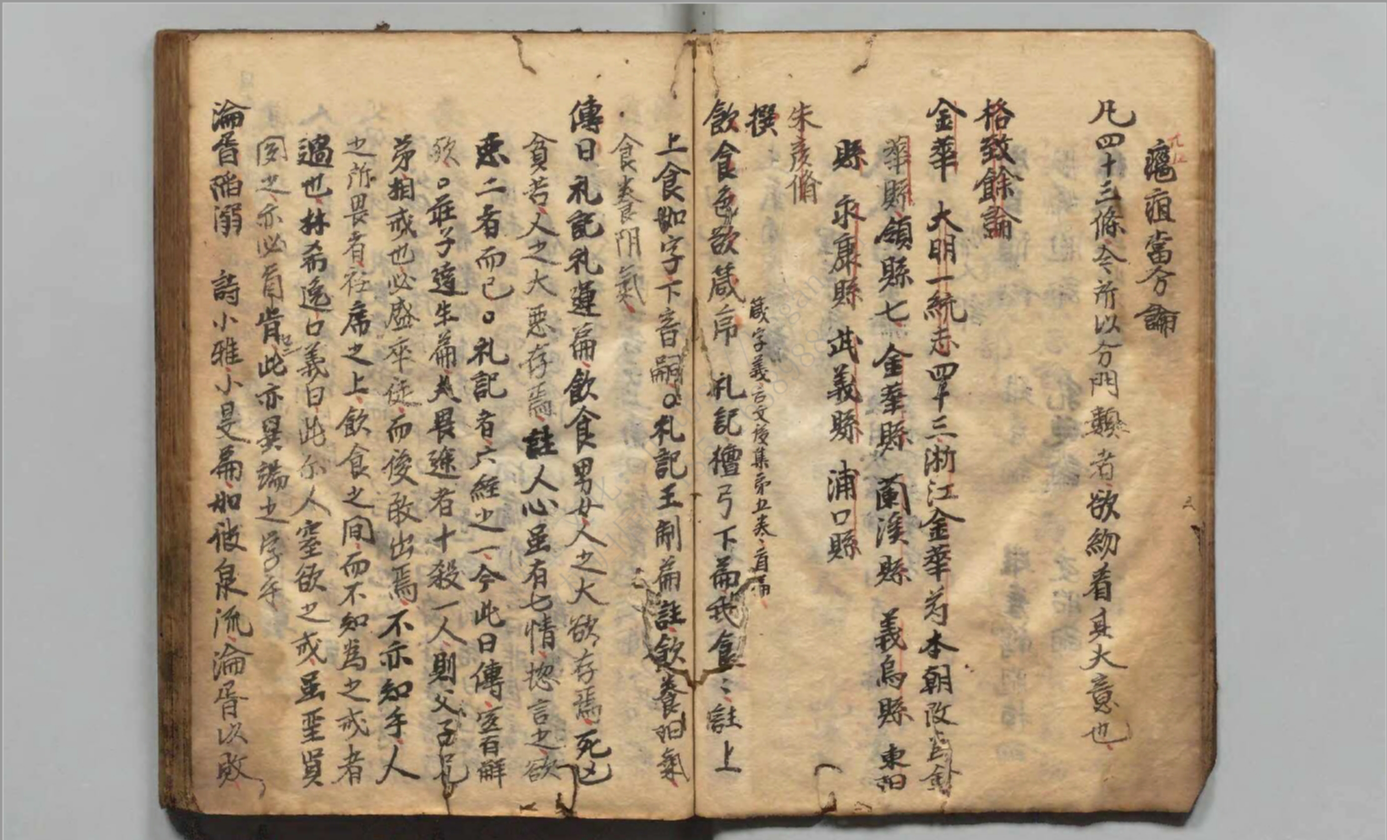 癰疽當分論
凡四十三條今所以分門類者欲初看其大意也
格致餘論
金華 大明一統志四十三浙江金華為本朝改為金
華縣領縣七金華縣 蘭溪縣 義烏縣 東阳
縣 永康縣 武義縣 浦口縣
朱彦脩
撰
箴字義言文後集第五卷首篇
飲食色欲箴序 礼記檀弓下篇我食〻註上
上食如字下音嗣○礼記王制篇註飲養阳氣
食養阴氣
傳曰礼記礼運篇飲食男女人之大欲存焉死亡
貧苦人之大悪存焉註人心虽有七情揔言之欲
悪二者而已○礼記者六経之一今此曰傳
欲○莊子達生篇夫畏途者十殺一人則父子兄
弟相戒也必盛卒徒而後敢出焉不亦知乎人
之所畏者衽席之上飲食之間而不知為之戒者
過也林希逸口義曰此尔人窒欲之戒虽聖賢
之亦必肯此亦異端之学乎
淪胥陥溺 詩小雅小旻篇如彼泉流淪胥以敗